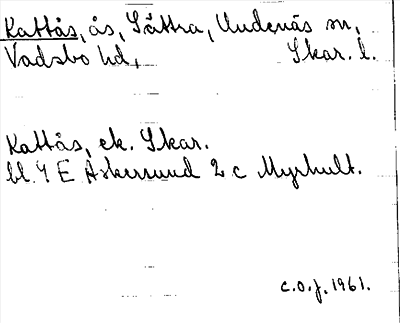 Kattås, ås, Sättra, Undenäs sn,
Vadsbo hd, Skar. l.
Kattås, ek. Skar.
bl. 4 E Askersund 2 c Myrhult.
c.o.j. 1961.